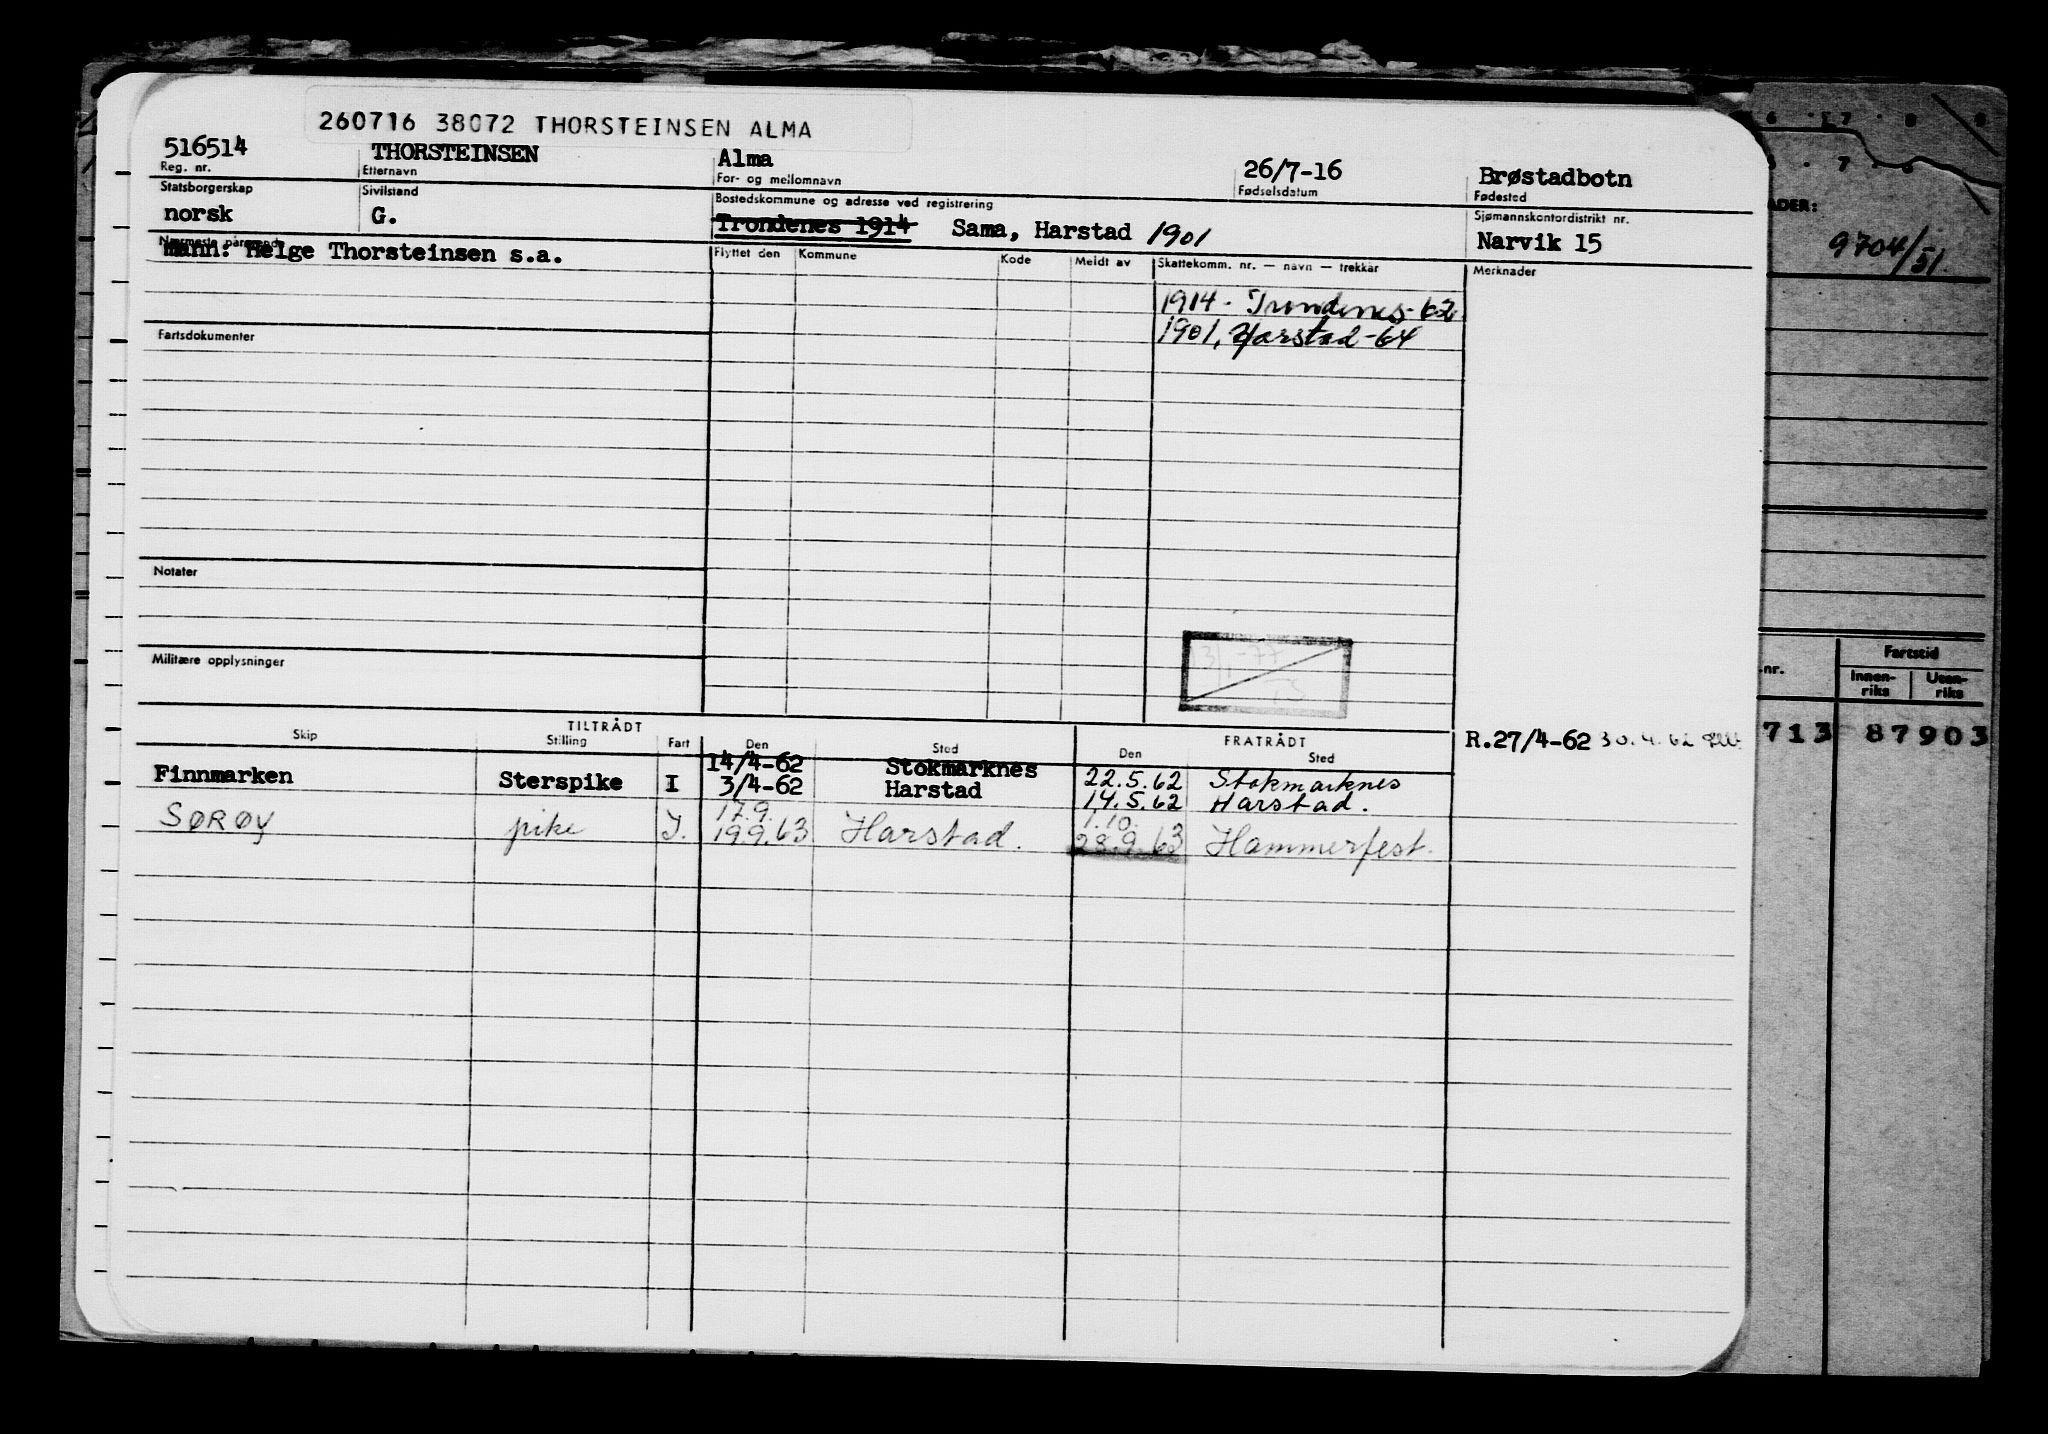 260716 38072 THORSTEINSEN ALMA
516514 THORSTEINSEN Alma 26/7-16 Brøstadbotn
Reg. nr. Etternavn For- og mellomnavn Fødselsdatum Fødested
Statsborgerskap Sivilstand Bostedskommune og adresse ved registrering Sjømannskontordistrikt nr.
norsk G. Trondenes 1914 Sama, Harstad 1901 Narvik 15
Nærmeste pårørende
mann: Helge Thorsteinsen s.a.
Flyttet den Kommune Kode Meldt av Skattekomm. nr. — navn — trekkår Merknader
1914 - Trondenes - 62
1901, Harstad - 64
Fartsdokumenter
Notater
Militære opplysninger
TILTRÅDT FRATRÅDT
Skip Stilling Fart Den Sted Den Sted
R.27/4-62 30.4.62
14/4-62 Stokmarknes 22.5.62 Stokmarknes
Finnmarken Sterspike I 3/4-62 Harstad 14.5.62 Harstad.
17.9. 1.10.
SØRØY pike I. 19.9.63 Harstad. 28.9.63 Hammerfest.
ADER:
9704/51.
nr. Fartstid
Innen-riks Uten-riks
713 87903